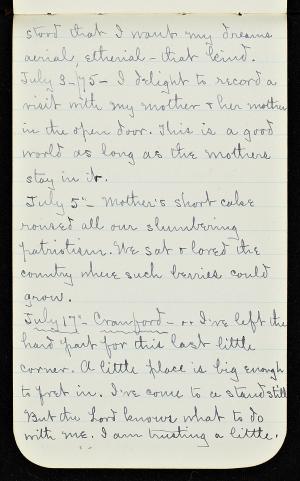 stood that I want my dreams
aerial, etherial - that kind.
July 3-/75 - I delight to record a
visit with my mother & her mother
in the open door. This is a good
world as long as the mothers
stay in it.
July 5" - Mother's short cake
roused all our slumbering
patriotism. We sat & loved the
country where such berries could
grow.
July 17" - Cranford - .. I've left the
hard part for this last little
corner. A little place is big enough
to fret in. I've come to a standstill
But the Lord knows what to do
with me. I am trusting a little.